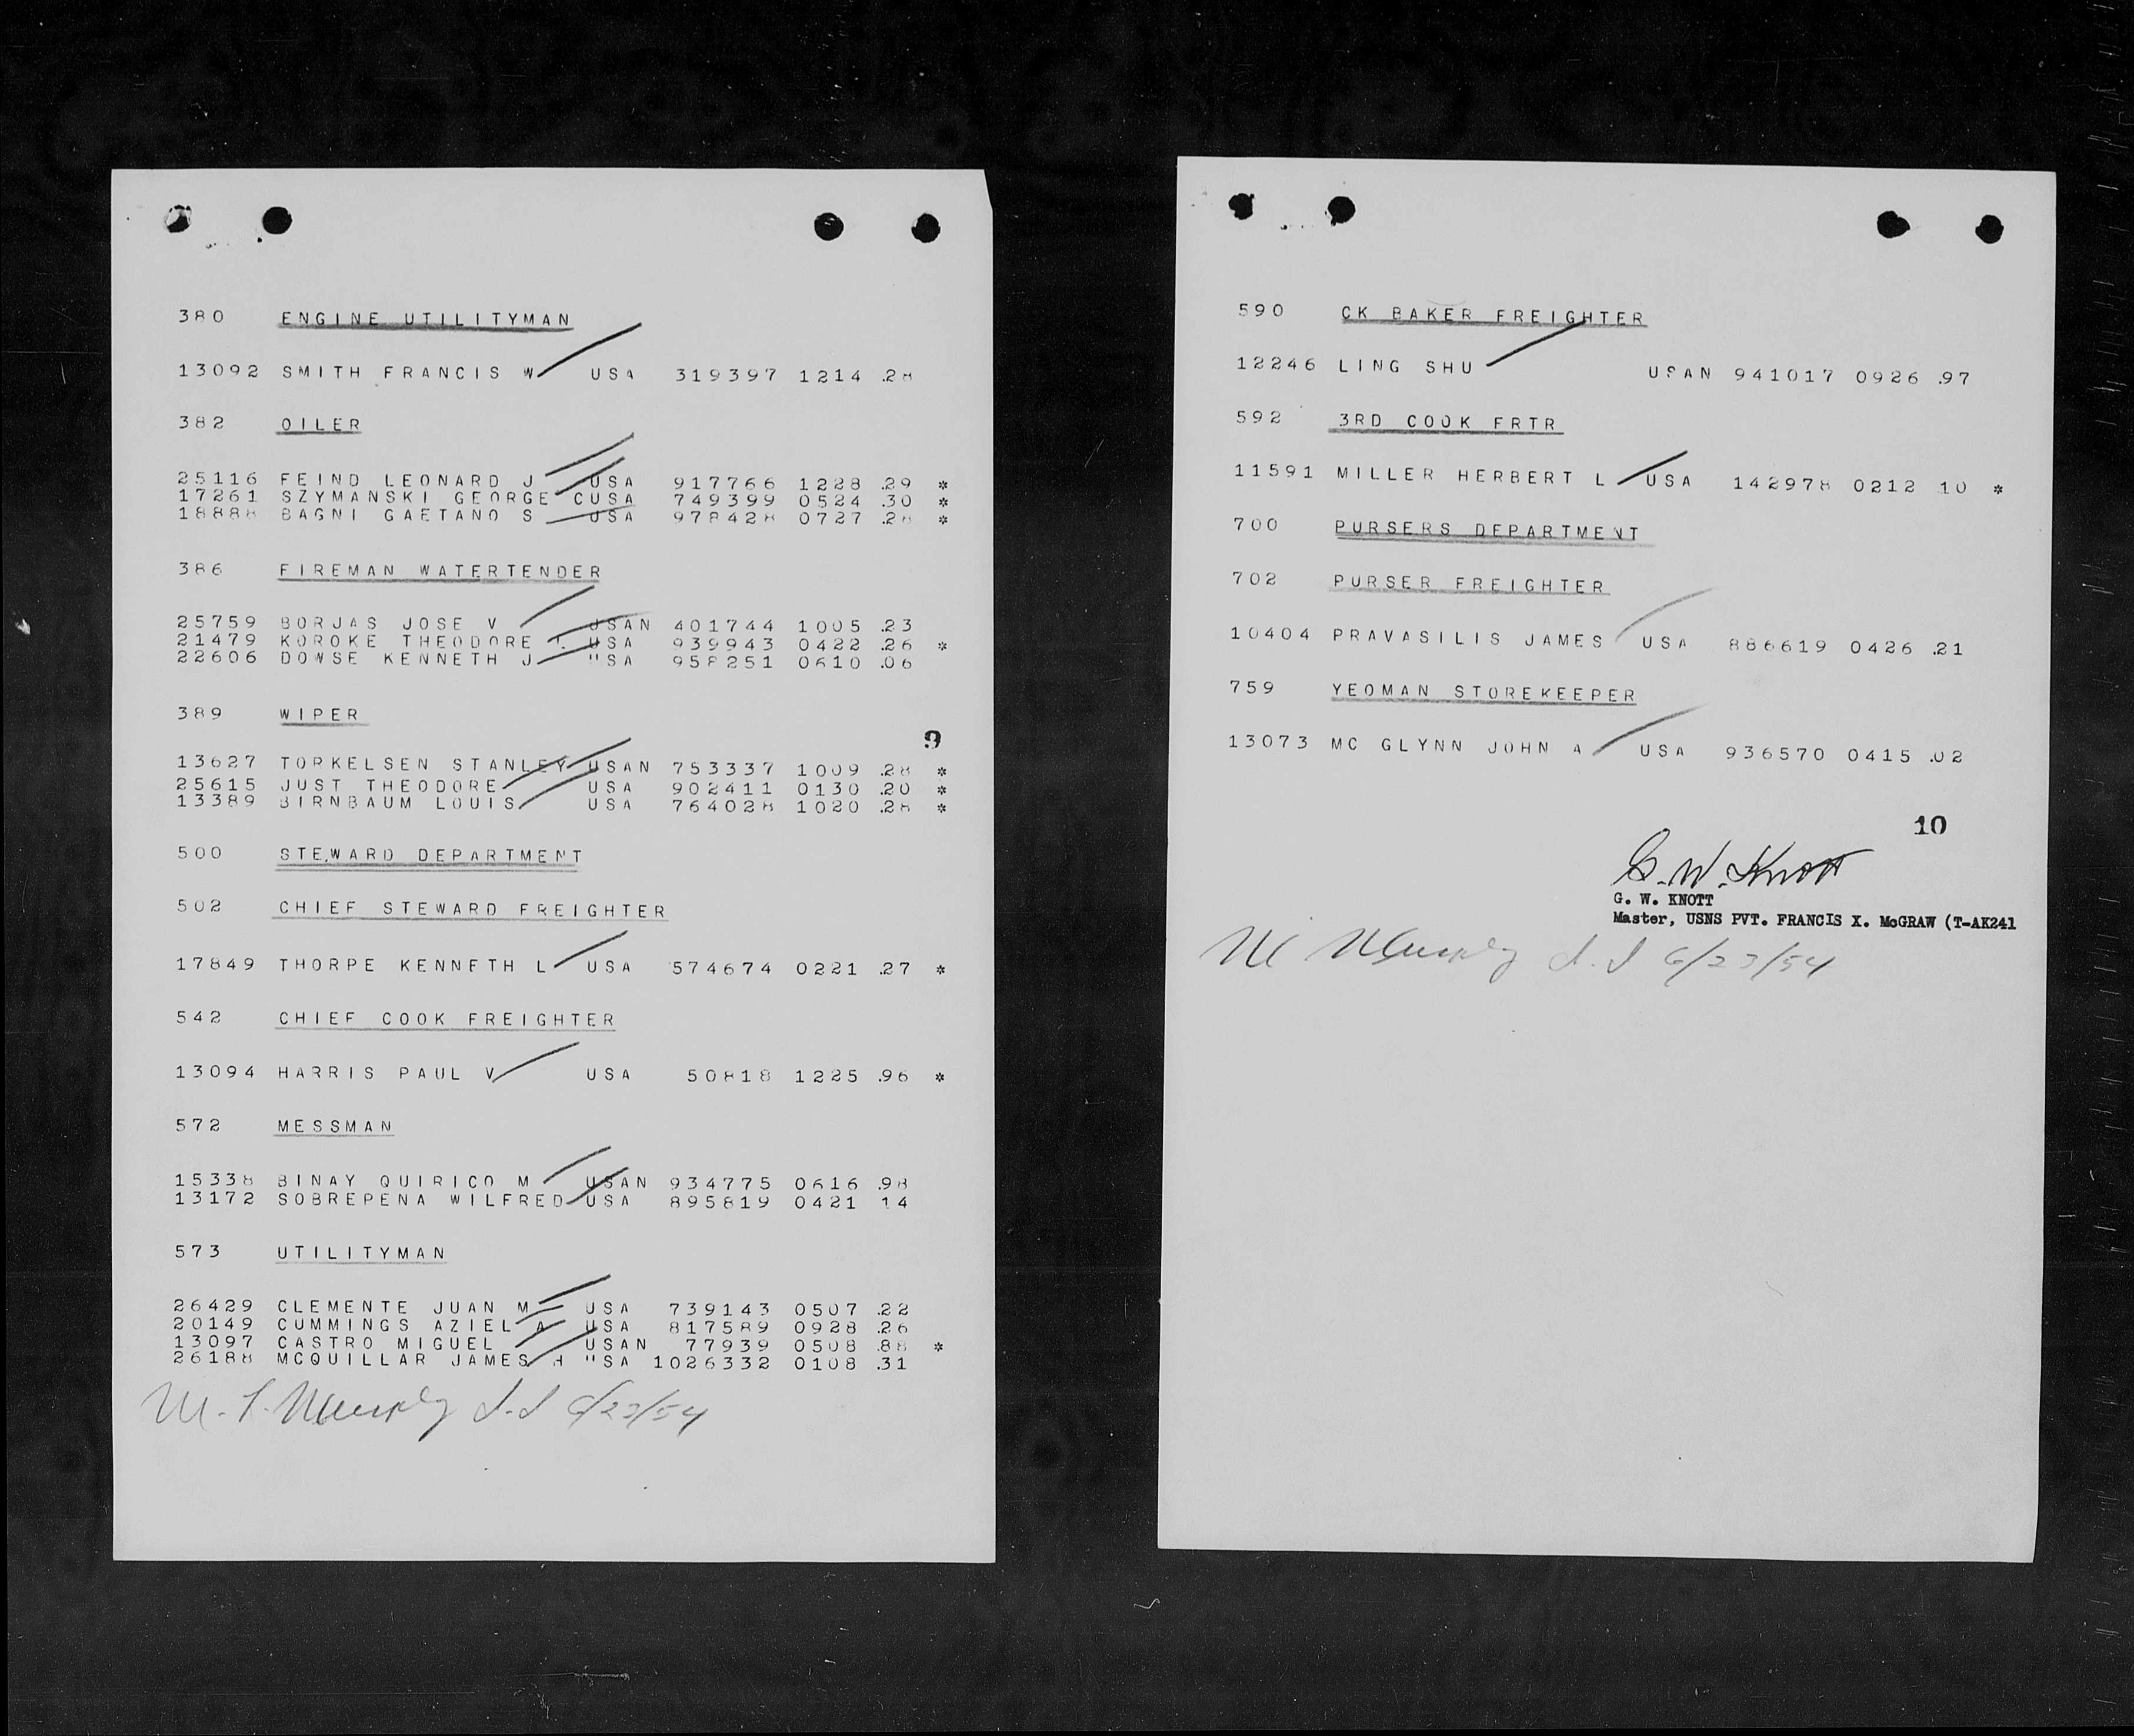 380 ENGINE UTILITYMAN
13092 SMITH FRANCIS W USA 319397 1214 .28
382 OILER
25116 FEIND LEONARD J USA 917766 1228 .29 *
17261 SZYMANSKI GEORGE CUSA 749399 0524 .30 *
18888 BAGNI GAETANO S USA 978428 0727 .28 *
386 FIREMAN WATERTENDER
25759 BORJAS JOSE V USAN 401744 1005 .23
21479 KOROKE THEODORE USA 939943 0422 .26 *
22606 DOWSE KENNETH J USA 958251 0610 .06
389 WIPER
9
13627 TORKELSEN STANLEY USAN 753337 1009 .28 *
25615 JUST THEODORE USA 902411 0130 .20 *
13389 BIRNBAUM LOUIS USA 764028 1020 .28 *
500 STEWARD DEPARTMENT
502 CHIEF STEWARD FREIGHTER
17849 THORPE KENNETH L USA 574674 0221 .27 *
542 CHIEF COOK FREIGHTER
13094 HARRIS PAUL V USA 50818 1225 .96 *
572 MESSMAN
15338 BINAY QUIRICO M USAN 934775 0616 .98
13172 SOBREPENA WILFRED USA 895819 0421 14
573 UTILITYMAN
26429 CLEMENTE JUAN M USA 739143 0507 .22
20149 CUMMINGS AZIEL A USA 817589 0928 .26
13097 CASTRO MIGUEL USAN 77939 0508 .88 *
26188 MCQUILLAR JAMES H USA 1026332 0108 .31
M. L. Murphy 6/23/54
590 CK BAKER FREIGHTER
12246 LING SHU USAN 941017 0926 .97
592 3RD COOK FRTR
11591 MILLER HERBERT L USA 142978 0212 10 *
700 PURSERS DEPARTMENT
702 PURSER FREIGHTER
10404 PRAVASILIS JAMES USA 886619 0426 .21
759 YEOMAN STOREKEEPER
13073 MC GLYNN JOHN A USA 936570 0415 .02
10
G. W. Knott
G. W. KNOTT
Master, USNS PVT. FRANCIS X. McGRAW (T-AK241
M Murphy 6/23/54